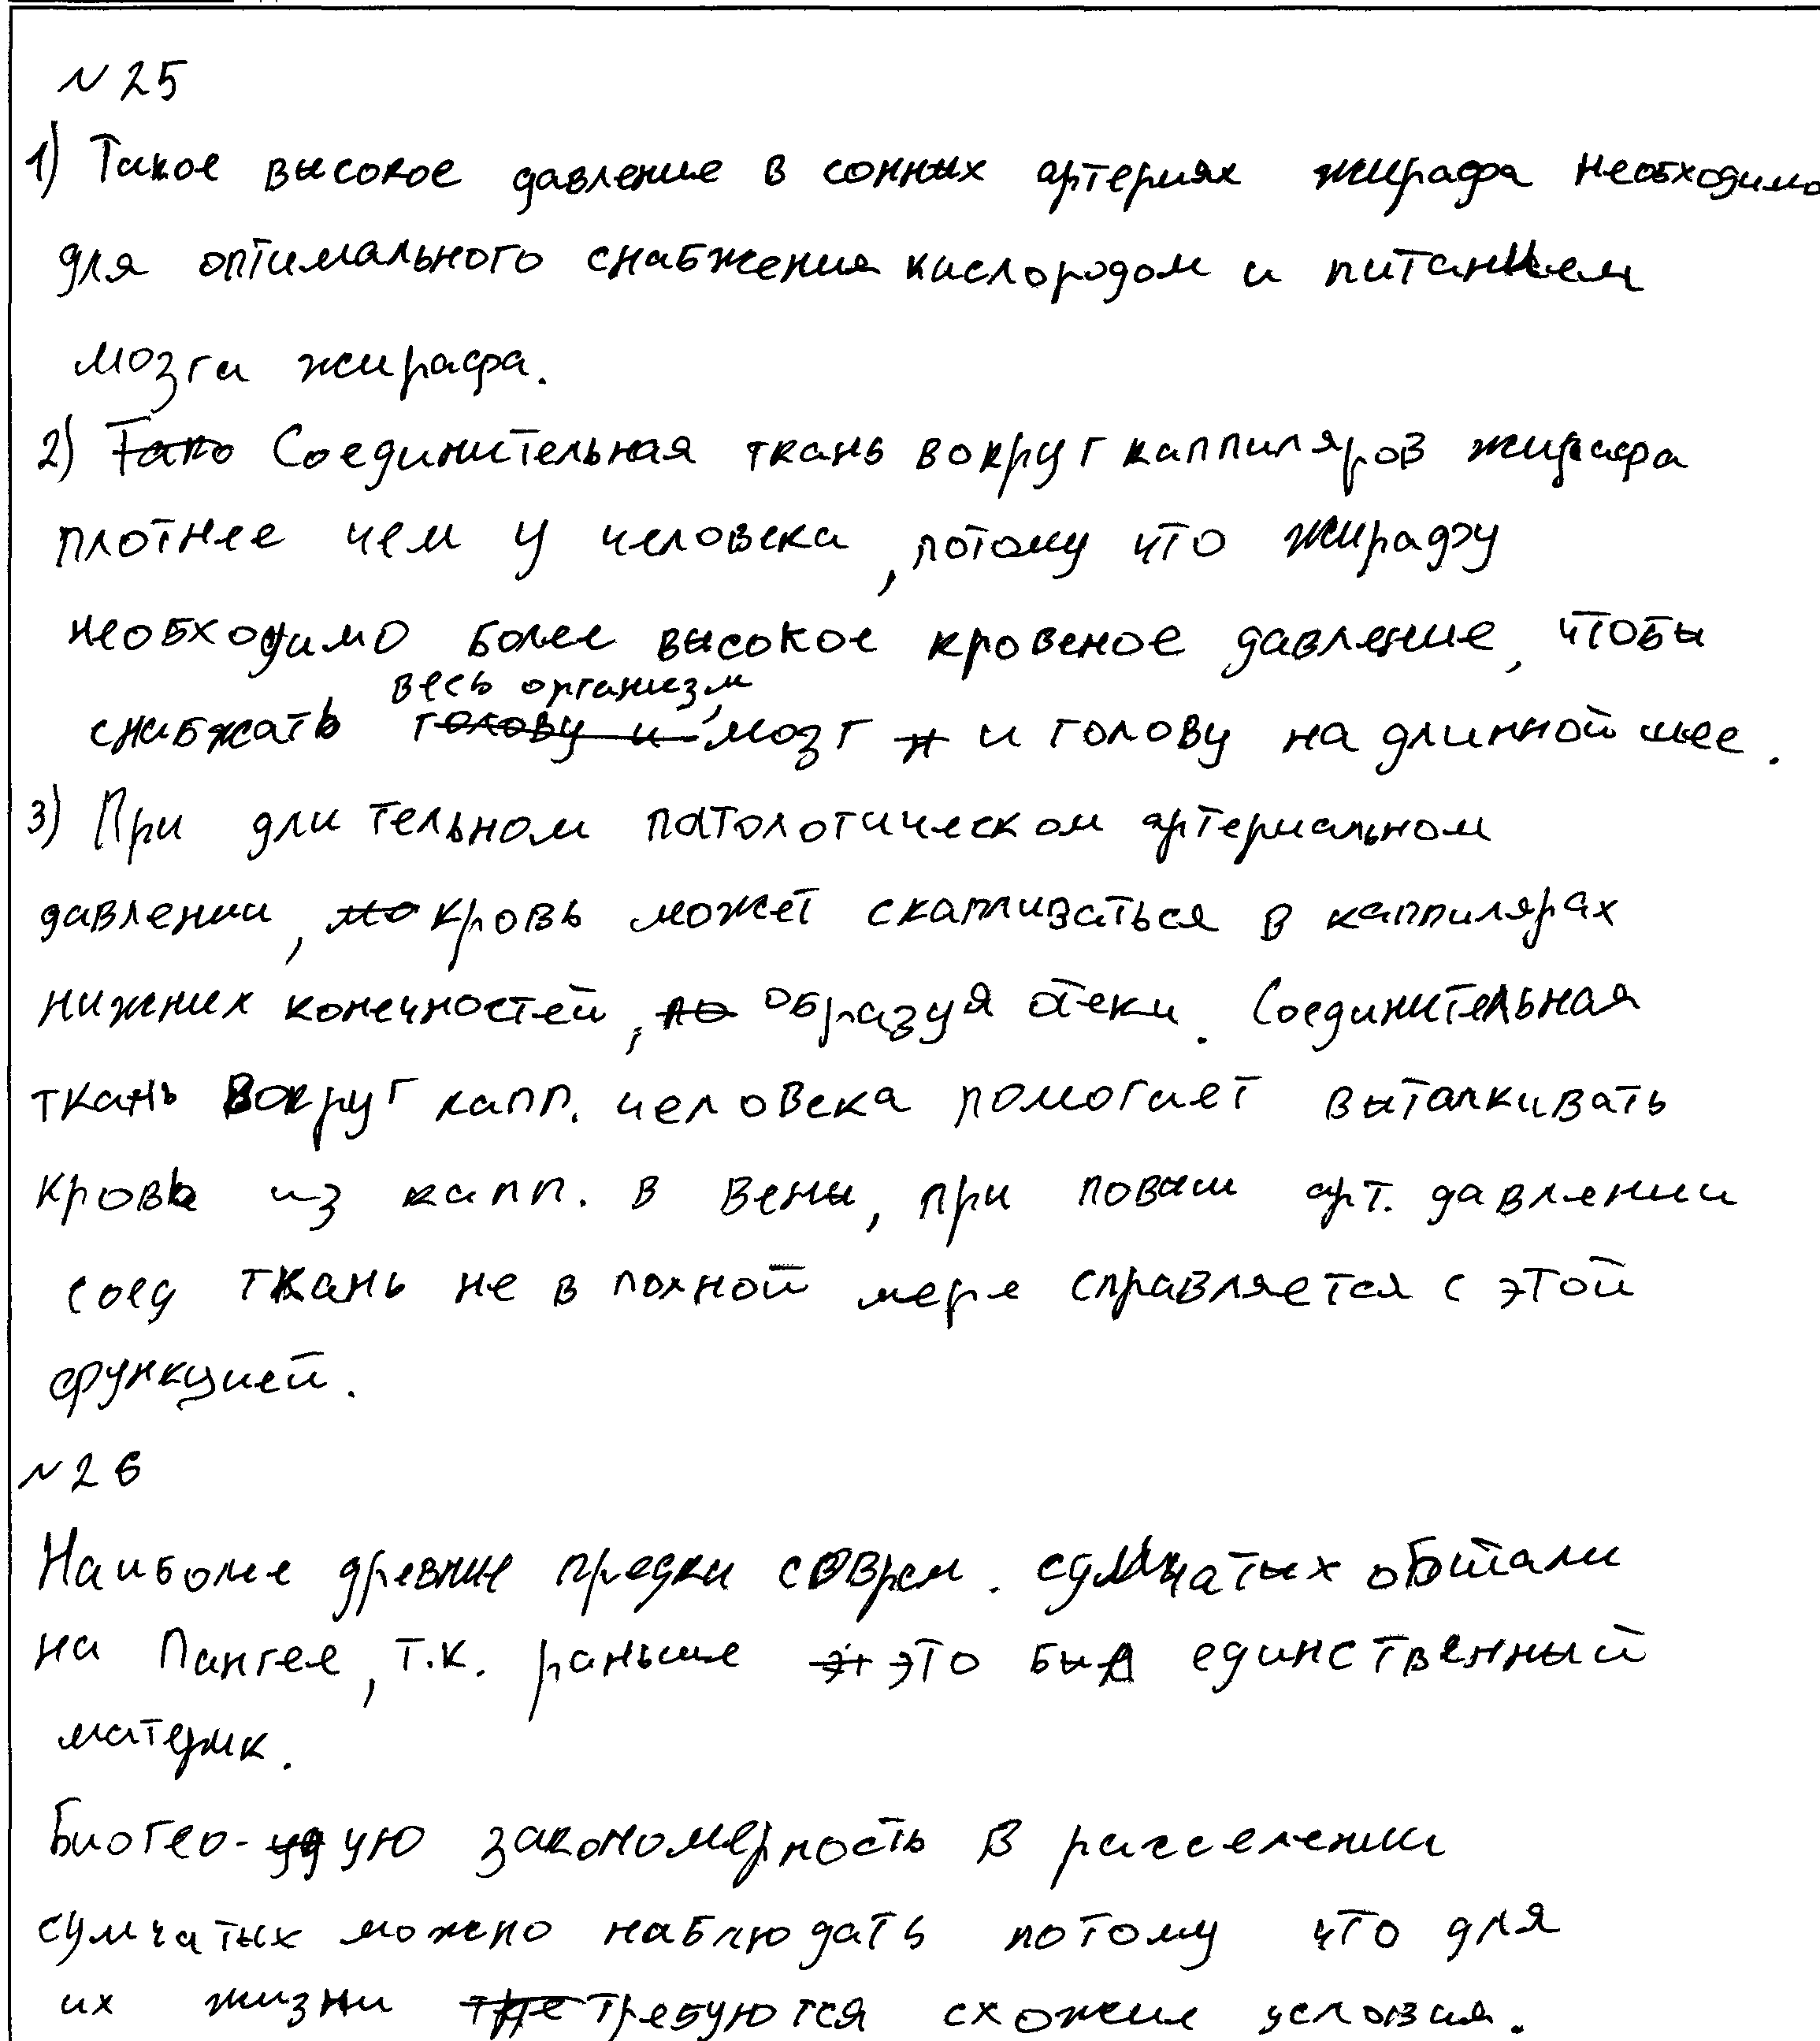 № 25
1) Такое высокое давление в сонных артериях жирафа необходимо
для оптимального снабжения кислородом и питанием
мозга жирафа.
2) Тако Соединительная ткань вокруг каппиляров жирафа
плотнее чем у человека, потому что жирафу
необходимо более высокое кровеное давление, чтобы
весь организм,
снабжать голову и мозг и и голову на длинной шее.
3) При длительном патологическом артериальном
давлении, мо кровь может скапливаться в каппилярах
нижних конечностей, по образуя отеки. Соединительная
ткань вокруг капп. человека помогает выталкивать
кровь из капп. в вены, при повыш арт. давлении
соед ткань не в полной мере справляется с этой
функцией.
№ 26
Наиболее древние предки соврем. сумчатых обитали
на Пангее, т.к. раньше эт это был единственный
материк.
Биогео-ую закономерность в расселении
сумчатых можно наблюдать потому что для
их жизни требуются схожие условия.